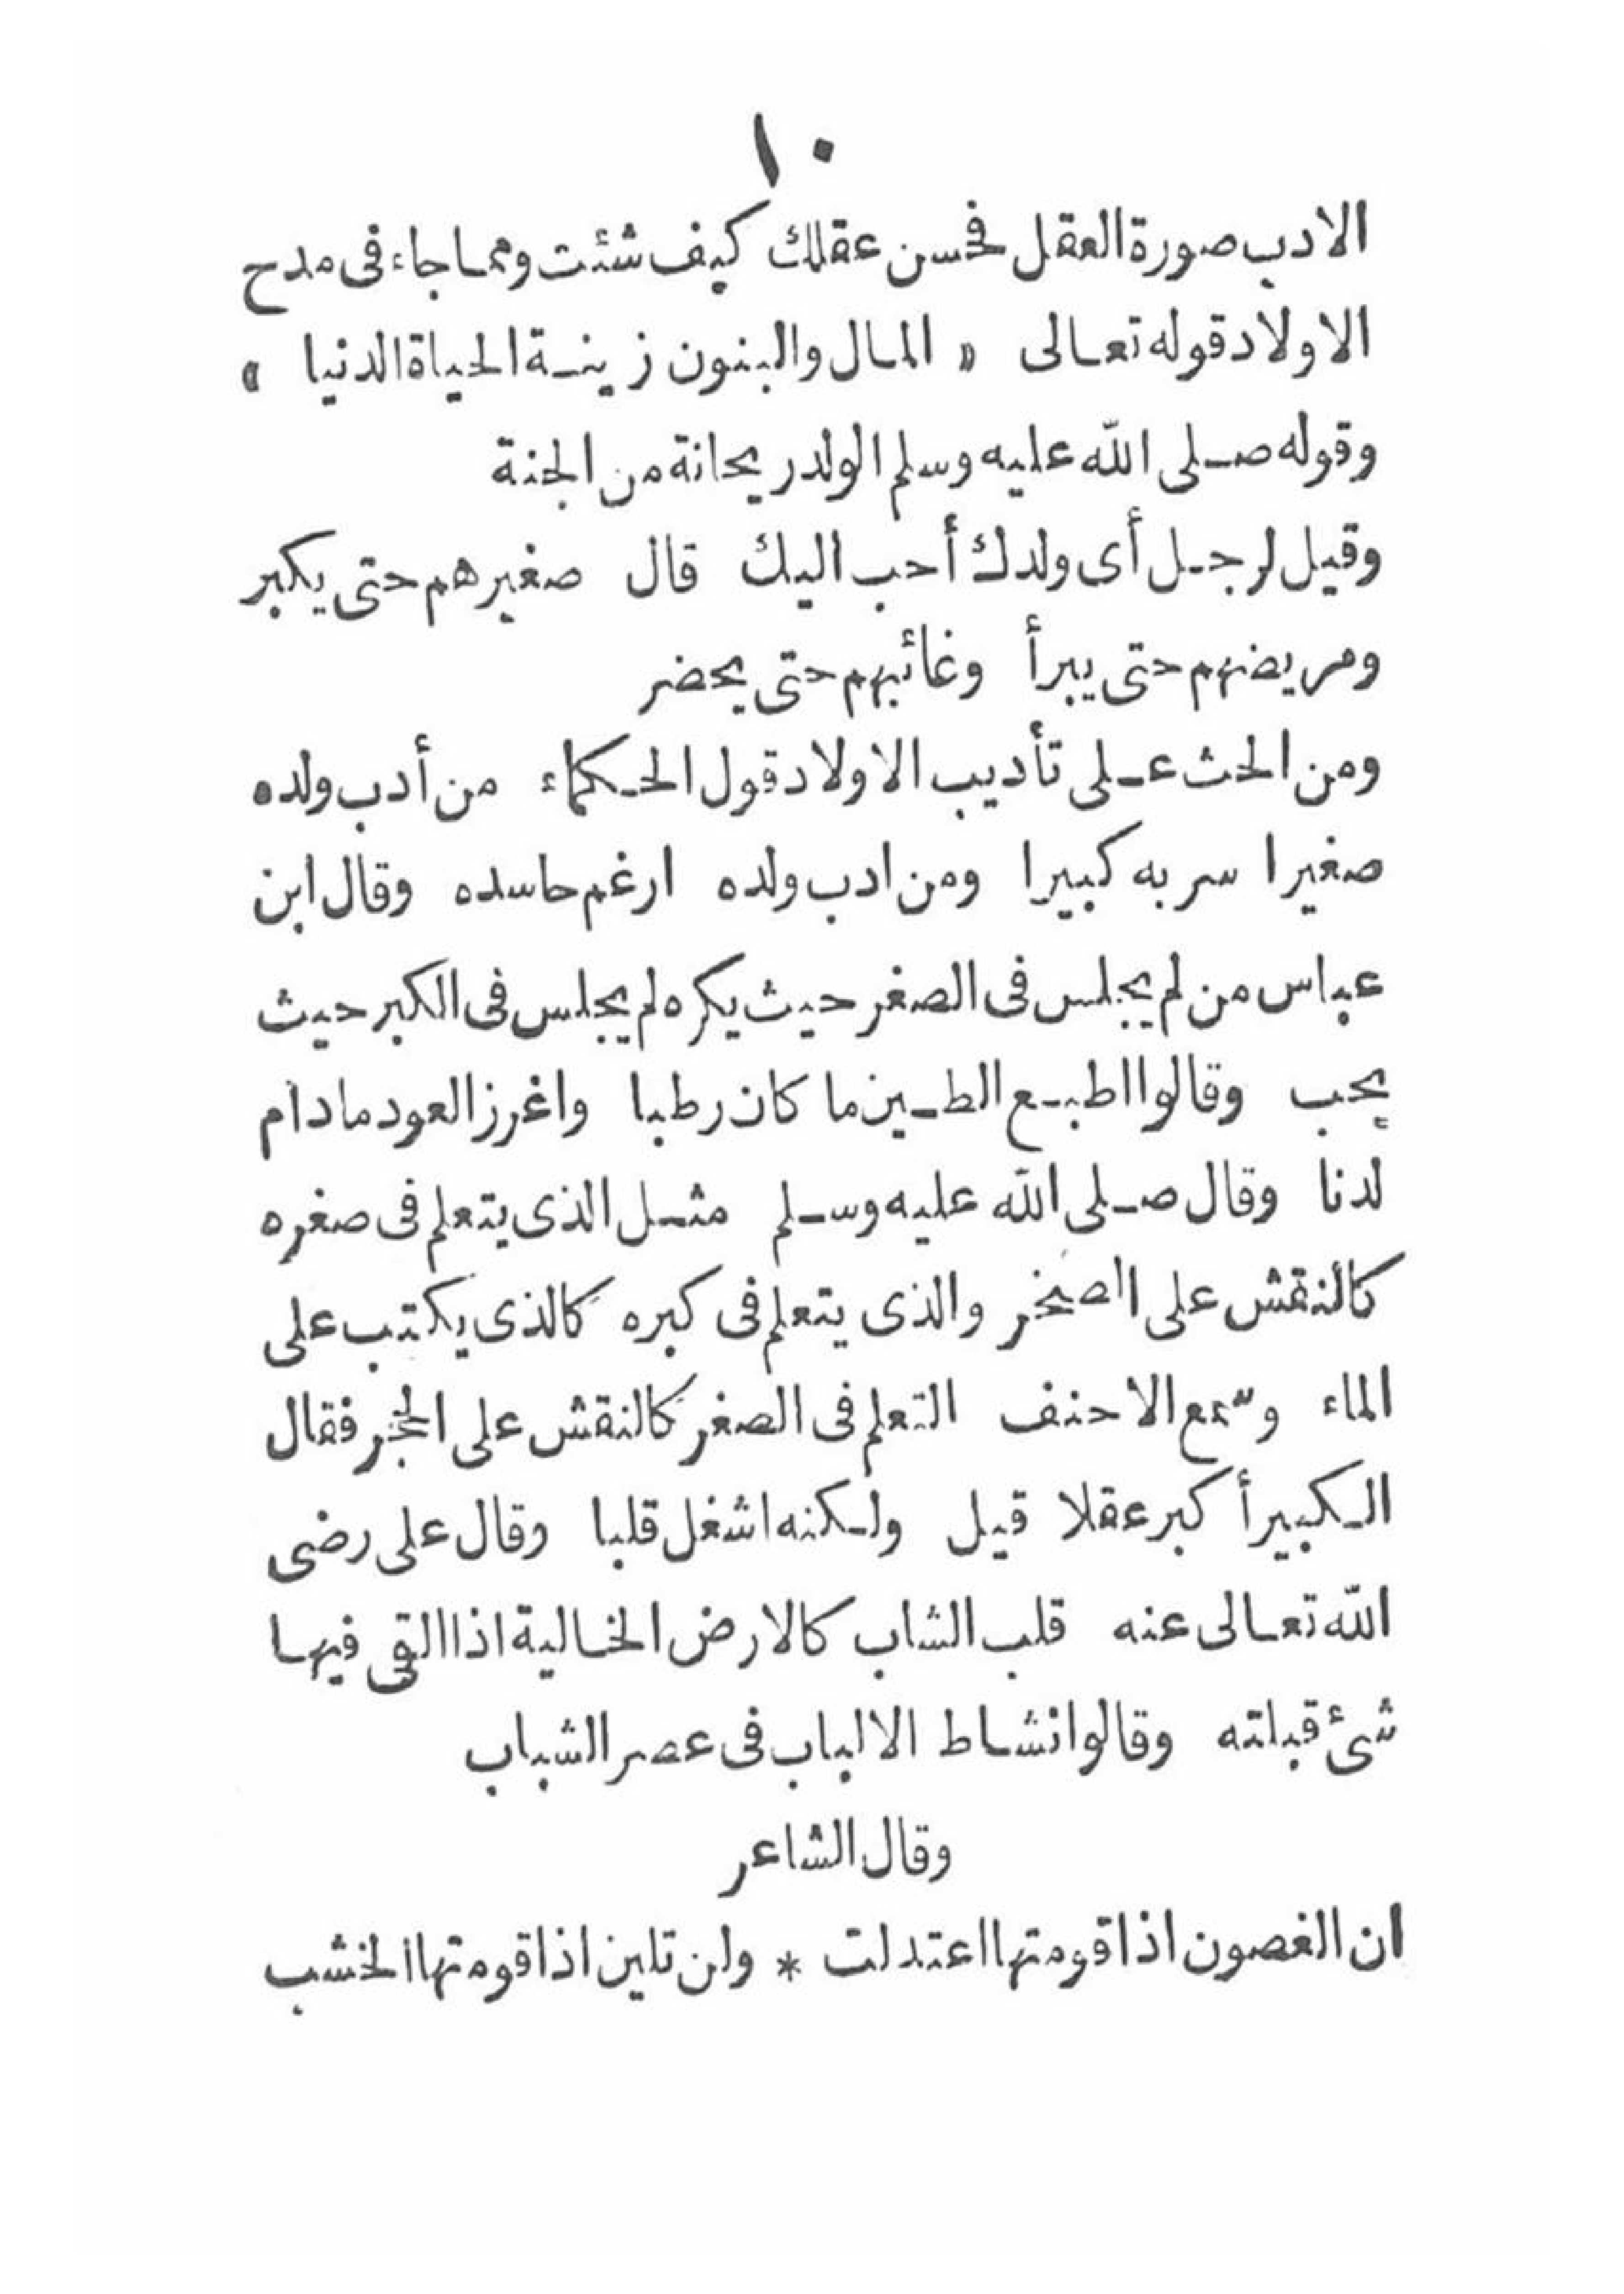 ١٠
الادب صورة العقل فحسن عقلك كيف شئت ومما جاء فى مدح
الاولاد قوله تعالى « المال والبنون زينة الحياة الدنيا »
وقوله صلى الله عليه وسلم الولد ريحانة من الجنة
وقيل لرجل أى ولدك أحب اليك قال صغيرهم حتى يكبر
ومريضهم حتى يبرأ وغائبهم حتى يحضر
ومن الحث على تأديب الاولاد قول الحكماء من أدب ولده
صغيرا سر به كبيرا ومن ادب ولده ارغم حاسده وقال ابن
عباس من لم يجلس فى الصغر حيث يكره لم يجلس فى الكبر حيث
يحب وقالوا اطبع الطين ما كان رطبا واغرز العود مادام
لدنا وقال صلى الله عليه وسلم مثل الذى يتعلم فى صغره
كالنقش على الصخر والذى يتعلم فى كبره كالذى يكتب على
الماء وسمع الاحنف التعلم فى الصغر كالنقش على الحجر فقال
الكبير أكبر عقلا قيل ولكنه اشغل قلبا وقال على رضى
الله تعالى عنه قلب الشاب كالارض الخالية اذا القى فيها
شئ قبلته وقالوا نشاط الالباب فى عصر الشباب
وقال الشاعر
ان الغصون اذا قومتها اعتدلت * ولن تلين اذا قومتها الخشب